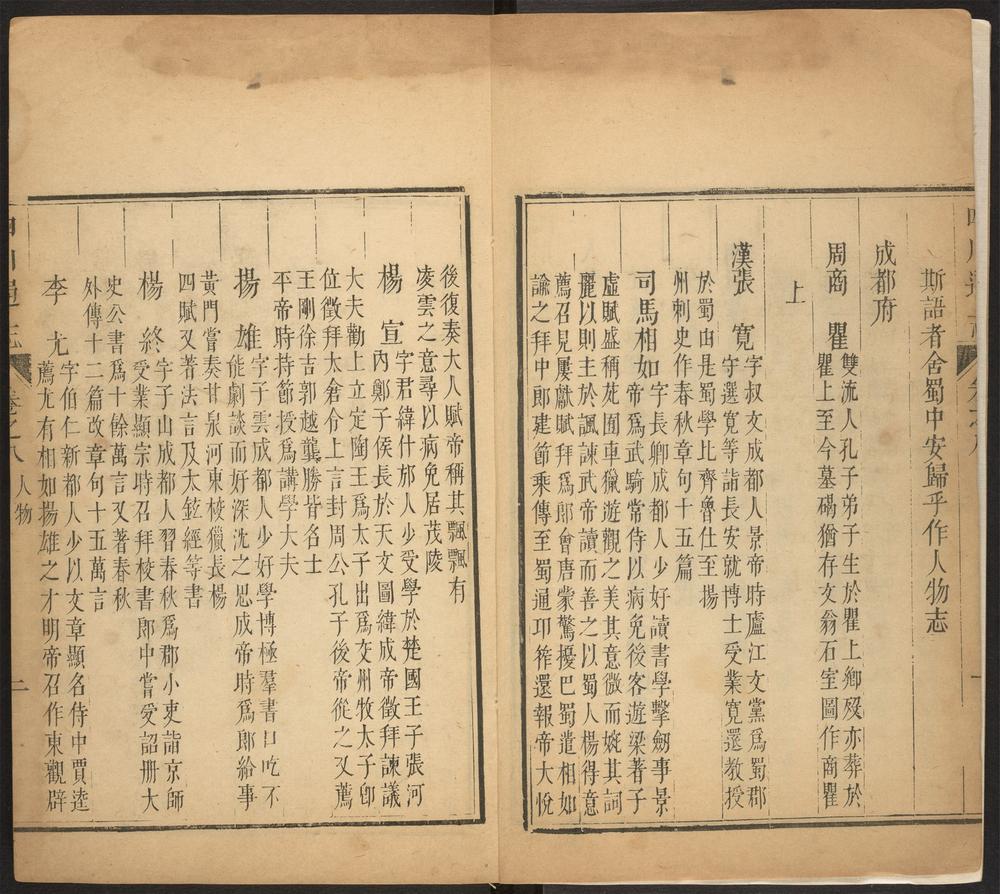 斯語者舍蜀中安歸乎作人物志
成都府
周商 瞿
雙流人孔子弟子生於瞿上鄉歿亦葬於
瞿上至今墓碣猶存文翁石室圖作商瞿
上
漢張 寬
字叔文成都人景帝時廬江文黨爲蜀郡
守選寬等詣長安就博士受業寬還教授
於蜀由是蜀學比齊魯仕至揚
州刺史作春秋章句十五篇
司馬相如
字長卿成都人少好讀書學擊劒事景
帝爲武騎常侍以病免後客遊梁著子
虛賦盛稱苑囿車獵遊觀之美其意微而婉其詞
麗以則主於諷諫武帝讀而善之以蜀人楊得意
薦召見屢獻賦拜爲郎會唐蒙驚擾巴蜀遣相如
諭之拜中郎建節乘傳至蜀通邛筰還報帝大悅
後復奏大人賦帝稱其飄飄有
凌雲之意尋以病免居茂陵
楊 宣
字君緯什邡人少受學於楚國王子張河
內鄭子侯長於天文圖緯成帝徵拜諫議
大夫勸上立定陶王爲太子出爲交州牧太子卽
位徵拜太倉令上言封周公孔子後帝從之又薦
王剛徐吉郭越龔勝皆名士
平帝時持節授爲講學大夫
揚 雄
字子雲成都人少好學博極羣書口吃不
能劇談而好深沈之思成帝時爲郎給事
黃門嘗奏甘泉河東校獵長楊
四賦又著法言及太𤣥經等書
楊 終
字子山成都人習春秋爲郡小吏詣京師
受業顯宗時召拜校書郎中嘗受詔刪大
史公書爲十餘萬言又著春秋
外傳十二篇改章句十五萬言
李 尤
字伯仁新都人少以文章顯名侍中賈逵
薦尤有相如揚雄之才明帝召作東觀辟
卷之八
人物
二